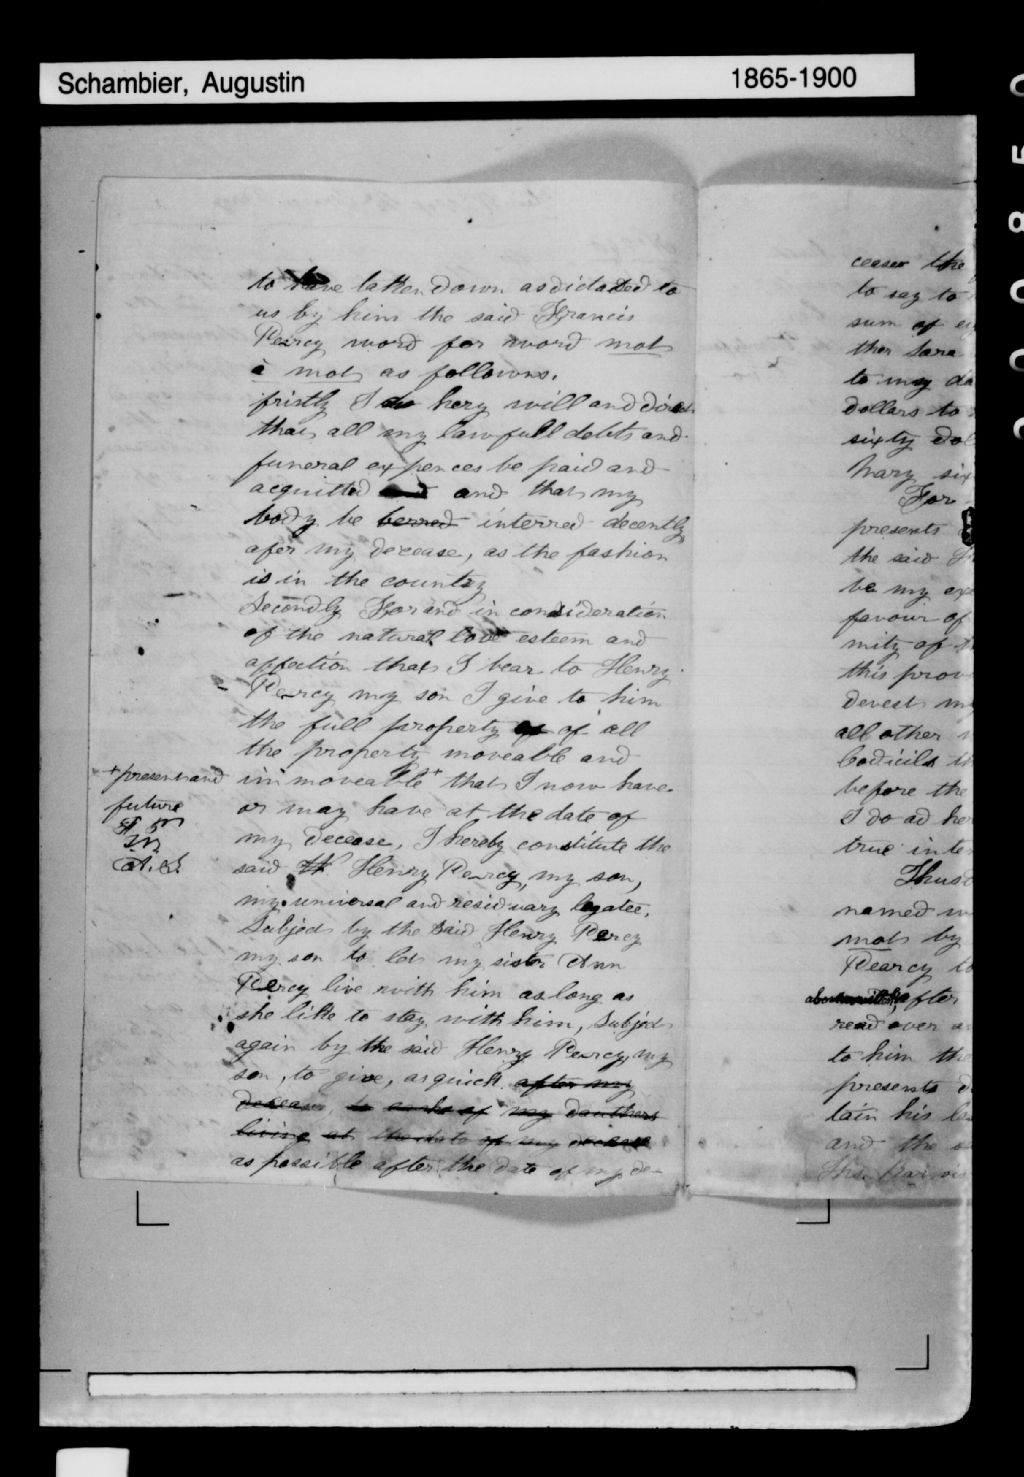 Schambier, Augustin 1865-1900
to have latten down as dictated to
us by him the said Francis
Pearcy word for word mot
à mot as follows.
fristly I do hery will and direct
that all my lawfull debts and
funeral expences be paid and
acquitted and and that my
body be berred interred decently
after my decease, as the fashion
is in the country
Secondly For and in consideration
of the natural love esteem and
affection that I bear to Henry
Pearcy my son I give to him
the full property of of all
the property moveable and
immoveable + that I now have
+ present and
future
or may have at the date of
my decease, I hereby constitute the
A. S.
said Henry Pearcy, my son,
my universal and residuary legatee,
Subject by the said Henry Pearcy
my son to let my sister Ann
Pearcy live with him as long as
she like to stay with him, Subject
again by the said Henry Pearcy, my
son, to give, as quick after my
decease, to each of my dauthers
living at the date of my decease
as possible after the date of my de-
ceases the
to say to
sum of
ther Sara
to my da
dollars to
sixty dol
Mary six
For
presents
the said
be my exe
favour of
mity of
this prov
devest my
all other
Codicils th
before the
I do ad her
true inten
Thus
named
mot by
Pearcy to
after
read over an
to him the
presents d
tain his las
and the